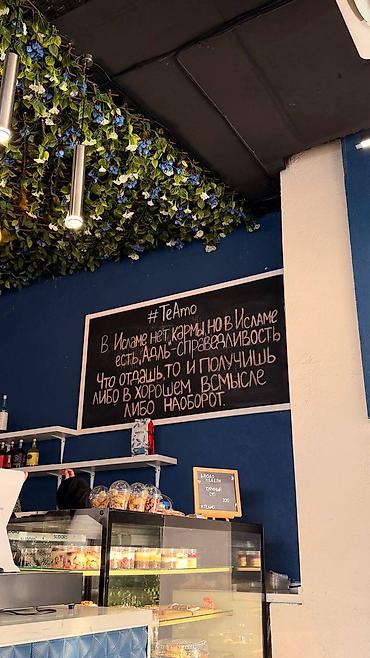 #TeAmo
В Исламе нет кармы, но в Исламе
есть, Адль-справедливость
Что отдашь, то и получишь
либо в хорошем всмысле
либо наоборот.